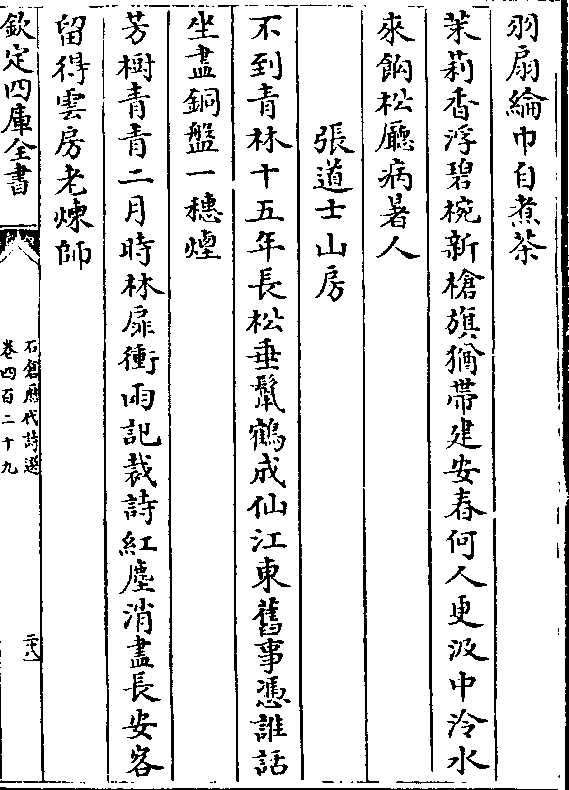 羽扇綸巾自煮茶
茉莉香浮碧椀新槍旗猶帶建安春何人更汲中泠水
來餉松廳病暑人
張道士山房
不到青林十五年長松垂鬛鶴成仙江東舊事憑誰話
坐盡銅盤一穗煙
芳樹青青二月時林扉衝雨記裁詩紅塵消盡長安客
留得雲房老煉師
欽定四庫全書
石倉歷代詩選
卷四百二十九
二十八